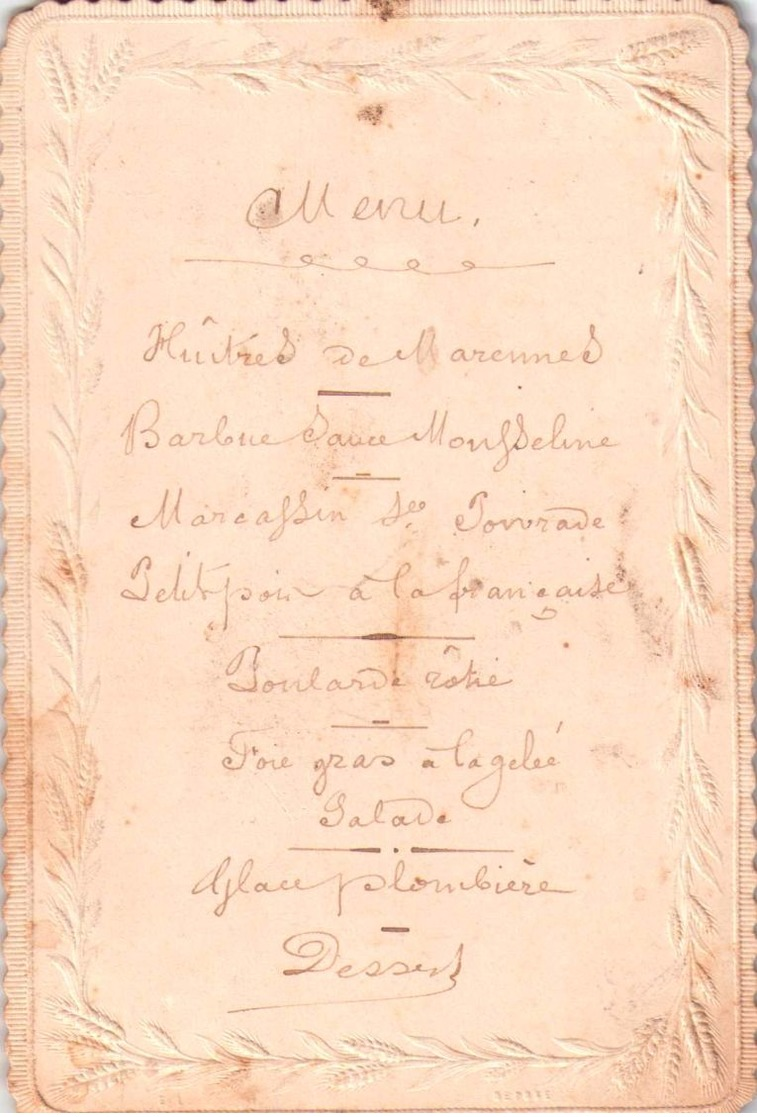 Menu.
Huîtres de Marennes
Barbue Sauce Mousseline
Marcassin Sce Poivrade
Petit pois à la française
Poularde rôtie
Foie gras à la gelée
Salade
Glace plombière
Dessert